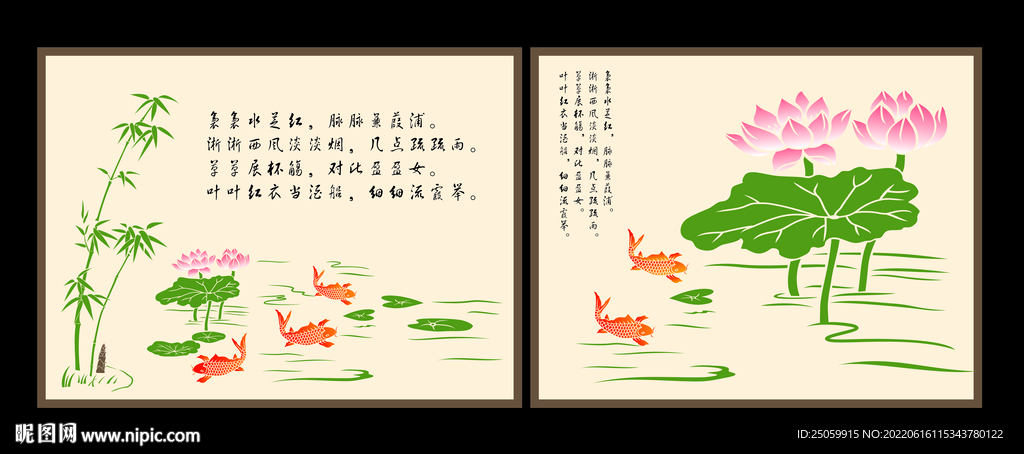 袅袅水芝红，脉脉蒹葭浦。
淅淅西风淡淡烟，几点疏疏雨。
草草展杯觞，对此盈盈女。
叶叶红衣当酒船，细细流霞举。
袅袅水芝红，脉脉蒹葭浦。
淅淅西风淡淡烟，几点疏疏雨。
草草展杯觞，对此盈盈女。
叶叶红衣当酒船，细细流霞举。
昵图网 www.nipic.com
ID:25059915 NO:20220616115343780122